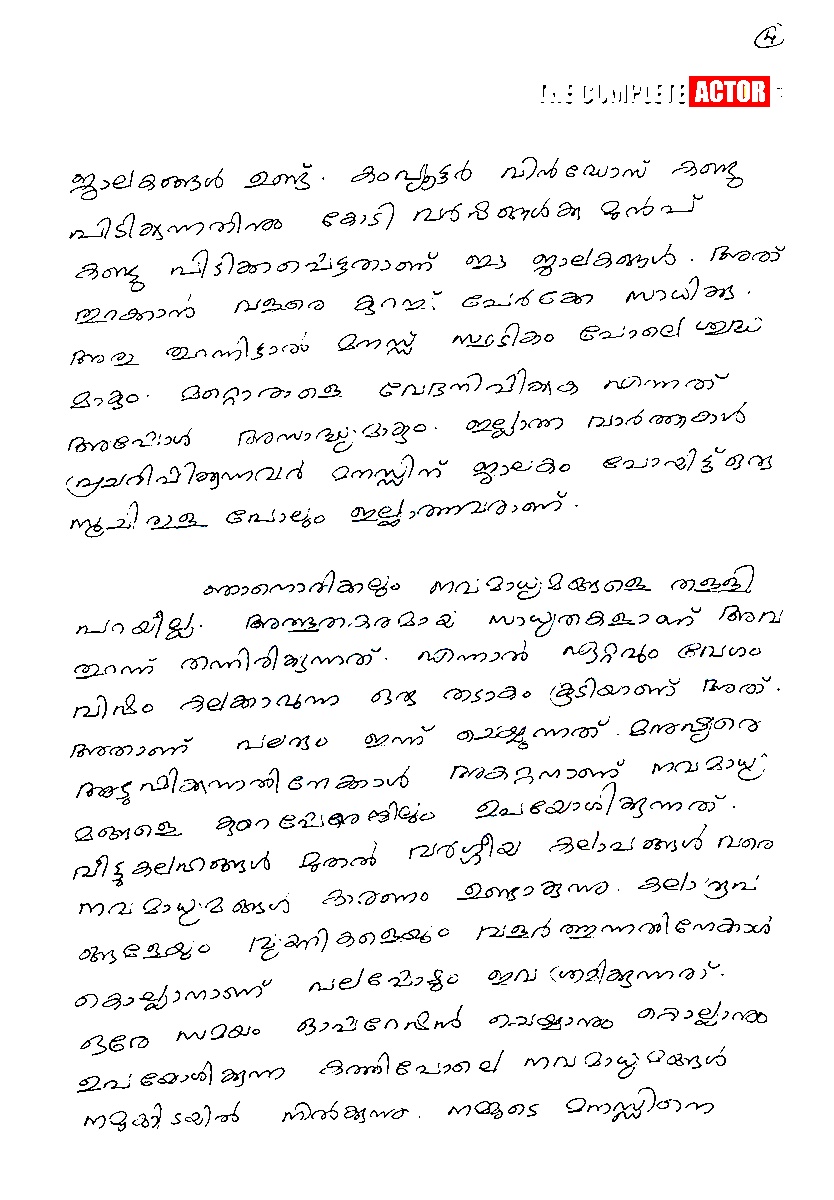 4
THE COMPLETE ACTOR
ജാലകങ്ങൾ ഉണ്ട്. കംപ്യൂട്ടർ വിൻഡോസ് കണ്ടു
പിടിക്കുന്നതിനും കോടി വർഷങ്ങൾക്കു മുൻപ്
കണ്ടു പിടിക്കപ്പെട്ടതാണ് ഈ ജാലകങ്ങൾ. അത്
തുറക്കാൻ വളരെ കുറച്ച് പേർക്കേ സാധിക്കൂ.
അതു തുറന്നിട്ടാൽ മനസ്സ് സ്ഫടികം പോലെ ശുദ്ധ
മാകും. മറ്റൊരാളെ വേദനിപ്പിക്കുക എന്നത്
അപ്പോൾ അസാദ്ധ്യമാകും. ഇല്ലാത്ത വാർത്തകൾ
പ്രചരിപ്പിക്കുന്നവർ മനസ്സിന് ജാലകം പോയിട്ട് ഒരു
സൂചിപ്പഴുത് പോലും ഇല്ലാത്തവരാണ്.
ഞാനൊരിക്കലും നവമാധ്യമങ്ങളെ തള്ളി
പറയില്ല. അത്ഭുതകരമായ സാധ്യതകളാണ് അവ
തുറന്ന് തന്നിരിക്കുന്നത്. എന്നാൽ ഏറ്റവും വേഗം
വിഷം കലക്കാവുന്ന ഒരു തടാകം കൂടിയാണ് അത്.
അതാണ് പലരും ഇന്ന് ചെയ്യുന്നത്. മനുഷ്യരെ
അടുപ്പിക്കുന്നതിനേക്കാൾ അകറ്റാനാണ് നവമാധ്യ
മങ്ങളെ കുറേപ്പേരെങ്കിലും ഉപയോഗിക്കുന്നത്.
വീട്ടുകലഹങ്ങൾ മുതൽ വർഗ്ഗീയ കലാപങ്ങൾ വരെ
നവമാധ്യമങ്ങൾ കാരണം ഉണ്ടാകുന്നു. കലാരൂപ
ങ്ങളേയും വ്യക്തികളെയും വളർത്തുന്നതിനേക്കാൾ
കൊല്ലാനാണ് പലപ്പോഴും ഇവ ശ്രമിക്കുന്നത്.
ഒരേ സമയം ഓപ്പറേഷൻ ചെയ്യാനും കൊല്ലാനും
ഉപയോഗിക്കുന്ന കത്തിപോലെ നവമാധ്യമങ്ങൾ
നമുക്കിടയിൽ നിൽക്കുന്നു. നമ്മുടെ മനസ്സിനെ